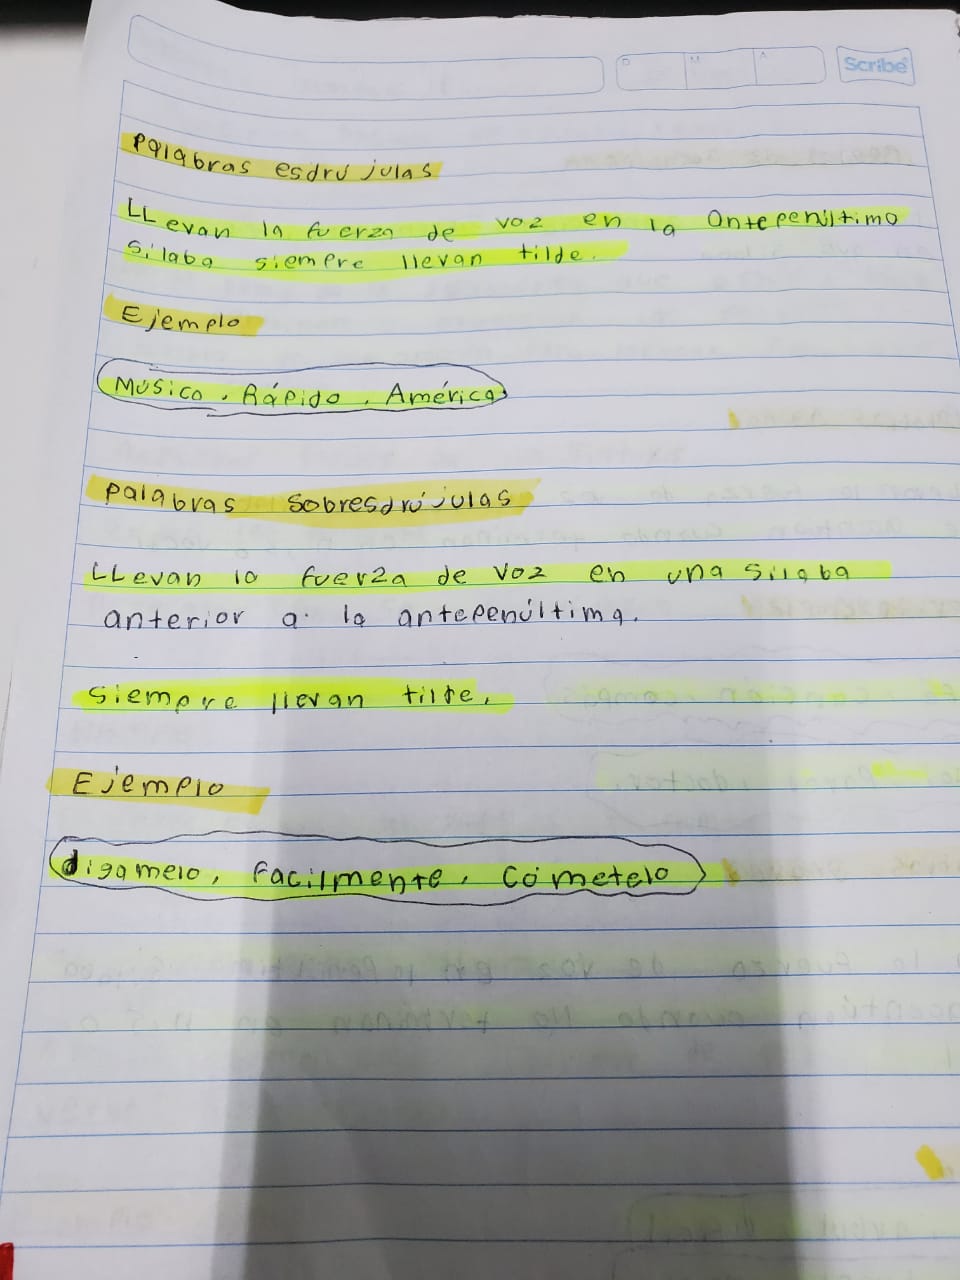 D M A Scribe
Palabras esdrújulas
LLevan la fuerza de voz en la antepenúltimo
sílaba siempre llevan tilde.
Ejemplo
Músico, Rápido, América
palabras sobresdrújulas
LLevan la fuerza de voz en una silaba
anterior a la antepenúltima.
siempre llevan tilte.
Ejemplo
digamelo, facilmente, cómetelo